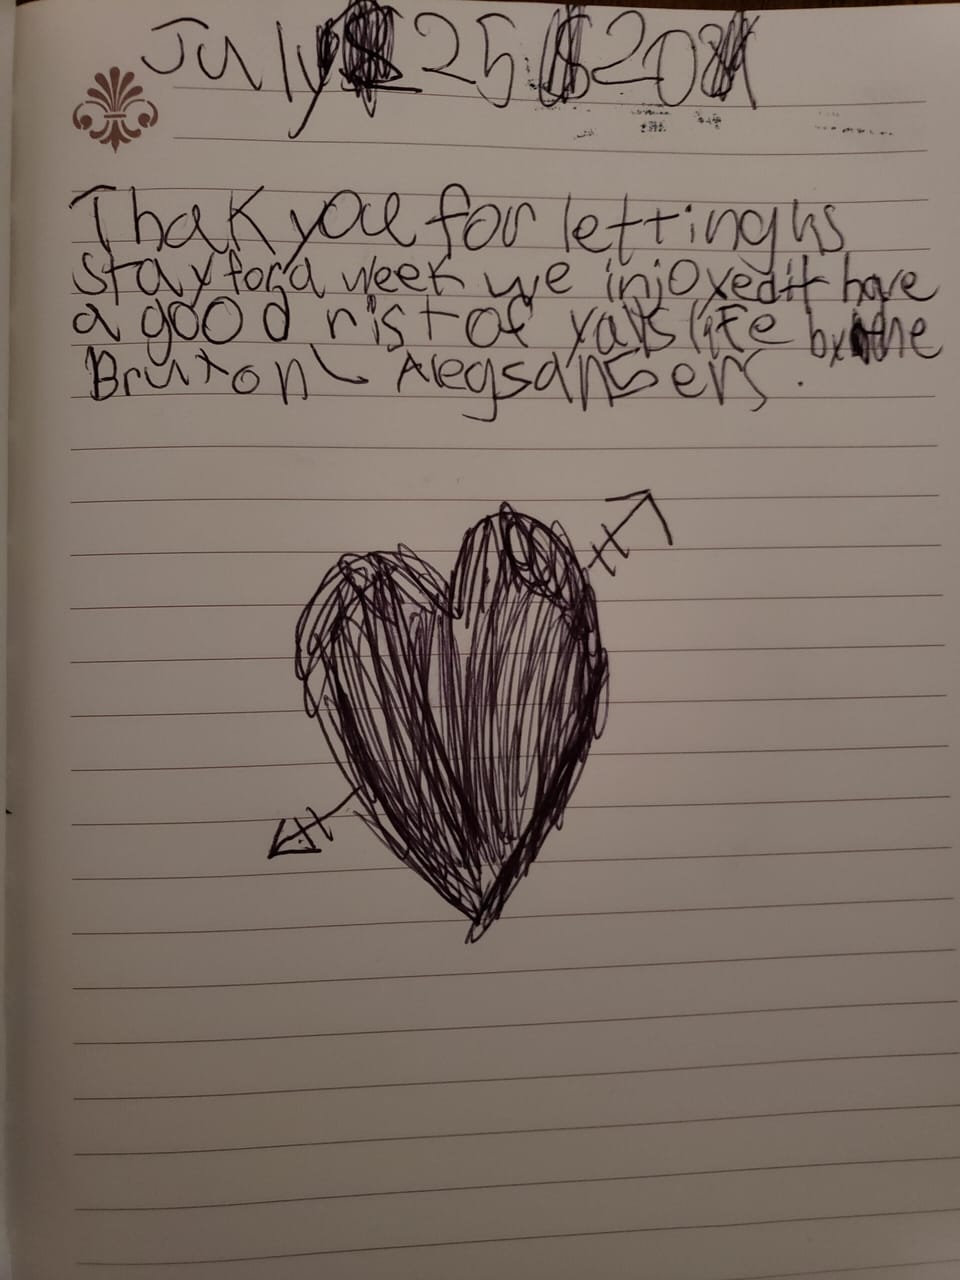 July 25 20
Thak you for letting us
stay for a week we injoyed it have
a good rist of yalls life by the
Bruton - Alegsanbers.